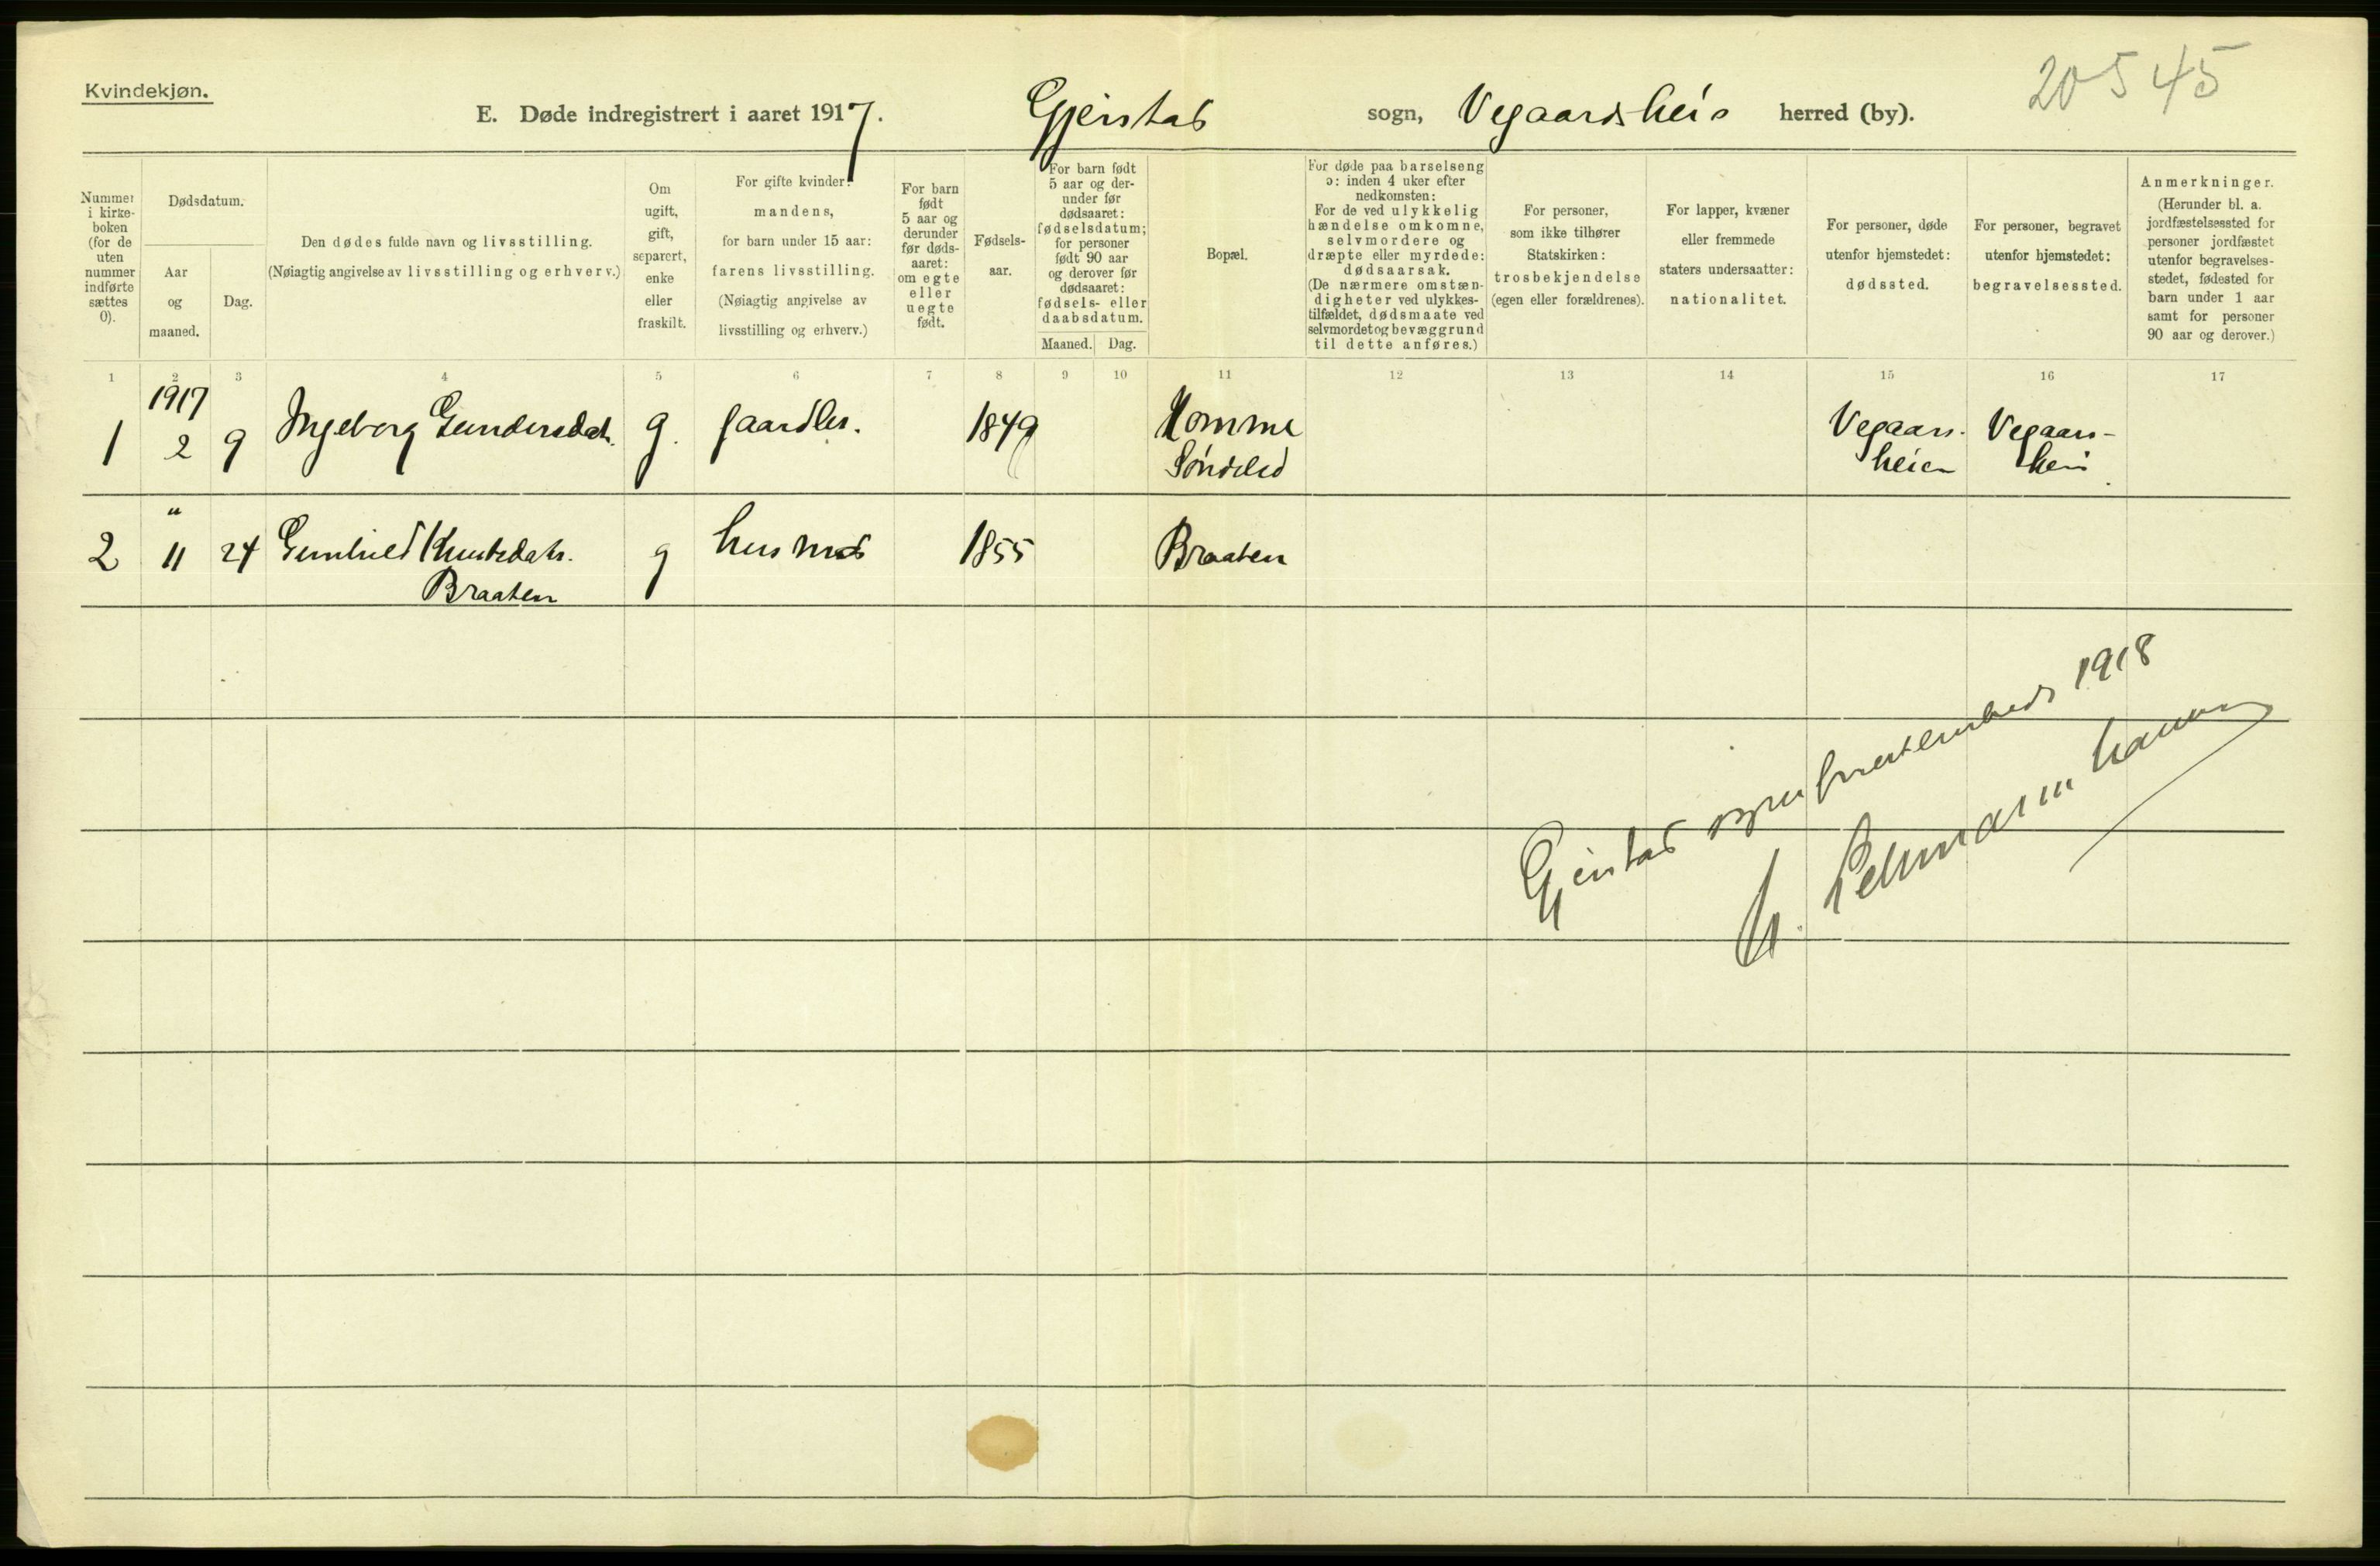 Kvindekjøn.
20545
E. Døde indregistrert i aaret 1917. Gjerstad sogn, Vegaardsheis herred (by).
Nummer
i kirke-
boken
(for de
uten
nummer
indførte
sættes
0).
Dødsdatum.
Aar
og
maaned.
Dag.
Den dødes fulde navn og livsstilling.
(Nøiagtig angivelse av livsstilling og erhverv.)
Om
ugift,
gift,
separert,
enke
eller
fraskilt.
For gifte kvinder:
mandens,
for barn under 15 aar:
farens livsstilling.
(Nøiagtig angivelse av
livsstilling og erhverv.)
For barn
født
5 aar og
derunder
før døds-
aaret:
om egte
eller
uegte
født.
Fødsels-
aar.
For barn født
5 aar og der-
under før
dødsaaret:
fødselsdatum;
for personer
født 90 aar
og derover før
dødsaaret:
fødsels- eller
daabsdatum.
Maaned. Dag.
Bopæl.
For døde paa barselseng
ɔ: inden 4 uker efter
nedkomsten:
For de ved ulykkelig
hændelse omkomne,
selvmordere og
dræpte eller myrdede:
dødsaarsak.
(De nærmere omstæn-
digheter ved ulykkes-
tilfældet, dødsmaate ved
selvmordet og bevæggrund
til dette anføres.)
For personer,
som ikke tilhører
Statskirken:
trosbekjendelse
(egen eller forældrenes).
For lapper, kvæner
eller fremmede
staters undersaatter:
nationalitet.
For personer, døde
utenfor hjemstedet:
dødssted.
For personer, begravet
utenfor hjemstedet:
begravelsessted.
Anmerkninger.
(Herunder bl. a.
jordfæstelsessted for
personer jordfæstet
utenfor begravelses-
stedet, fødested for
barn under 1 aar
samt for personer
90 aar og derover.)
1 2 3 4 5 6 7 8 9 10 11 12 13 14 15 16 17
1917
1 2 9 Ingeborg Gundersdatr. g. gaardbr. 1849 Homme Vegaars- Vegaars-
Søndeled heien hei
"
2 11 24 Gunhild Knutsdatr. g husmd 1855 Braaten
Braaten
Gjerstad sogneprestembede 1918
Lehmann